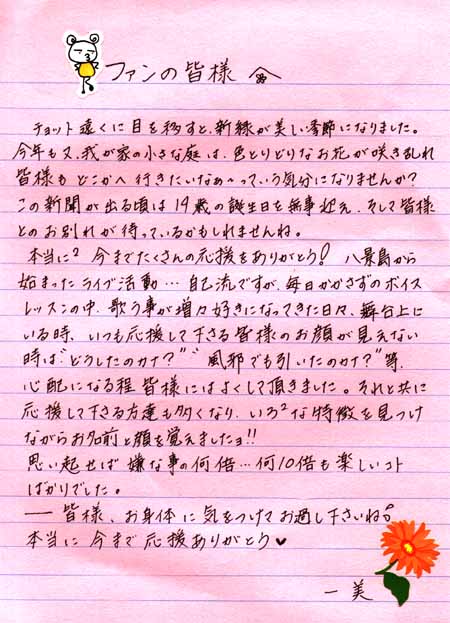 ファンの皆様へ
チョット遠くに目を移すと、新緑が美しい季節になりました。
今年も又、我が家の小さな庭は、色とりどりなお花が咲きみだれ
皆様もどこかへ行きたいなぁ〜っていう気分になりませんか?
この新聞が出る頃は19歳の誕生日を無事迎え、そして皆様
とのお別れが待っているかもしれませんね。
本当に² 今までたくさんの応援をありがとう! 八景島から
始まったライブ活動…自己流ですが、毎日かかさずのボイス
レッスンの中、歌う事が増々好きになってきた日々、舞台上に
いる時、いつも応援して下さる皆様のお顔が見えない
時は"どうしたのカナ?""風邪でも引いたのカナ?"等、
心配になる程皆様にはよくして頂きました。それと共に
応援して下さる方達も多くなり、いろ²な特徴を見つけ
ながらお名前と顔を覚えましたョ!!
思い起せば嫌な事の何倍…何10倍も楽しいコト
ばかりでした。
── 皆様、お身体に気をつけてお過し下さいね。
本当に今まで応援ありがとう♥
一美